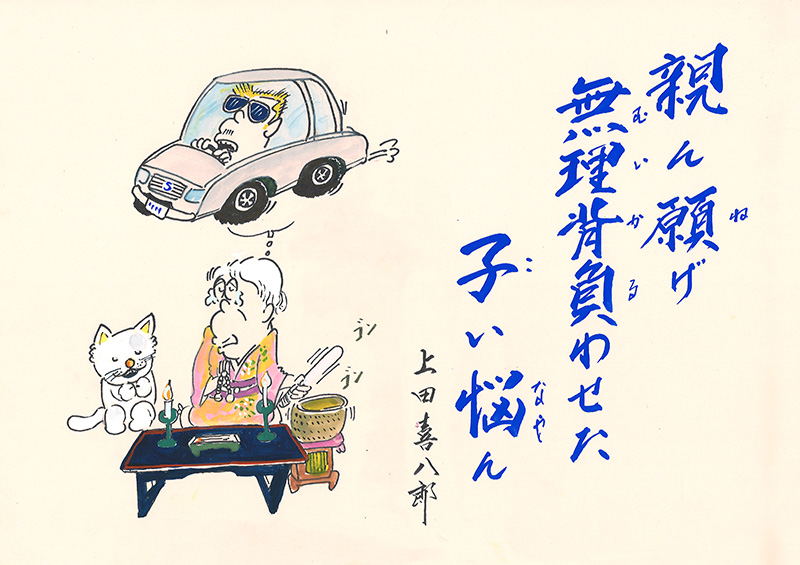 親ん願げ
ね
無理背負わせた
むいかる
子い悩ん
こなや
上田喜八郎
ゴン
ゴン
S